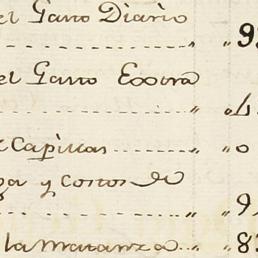 el Gasto Diario
......................... „ 9
el Gasto Exsora
......................... „ „
e Capillas ......... „ „ 0
ga y Costos de
......................... „ „ 9,
la Matanza ... „ 8